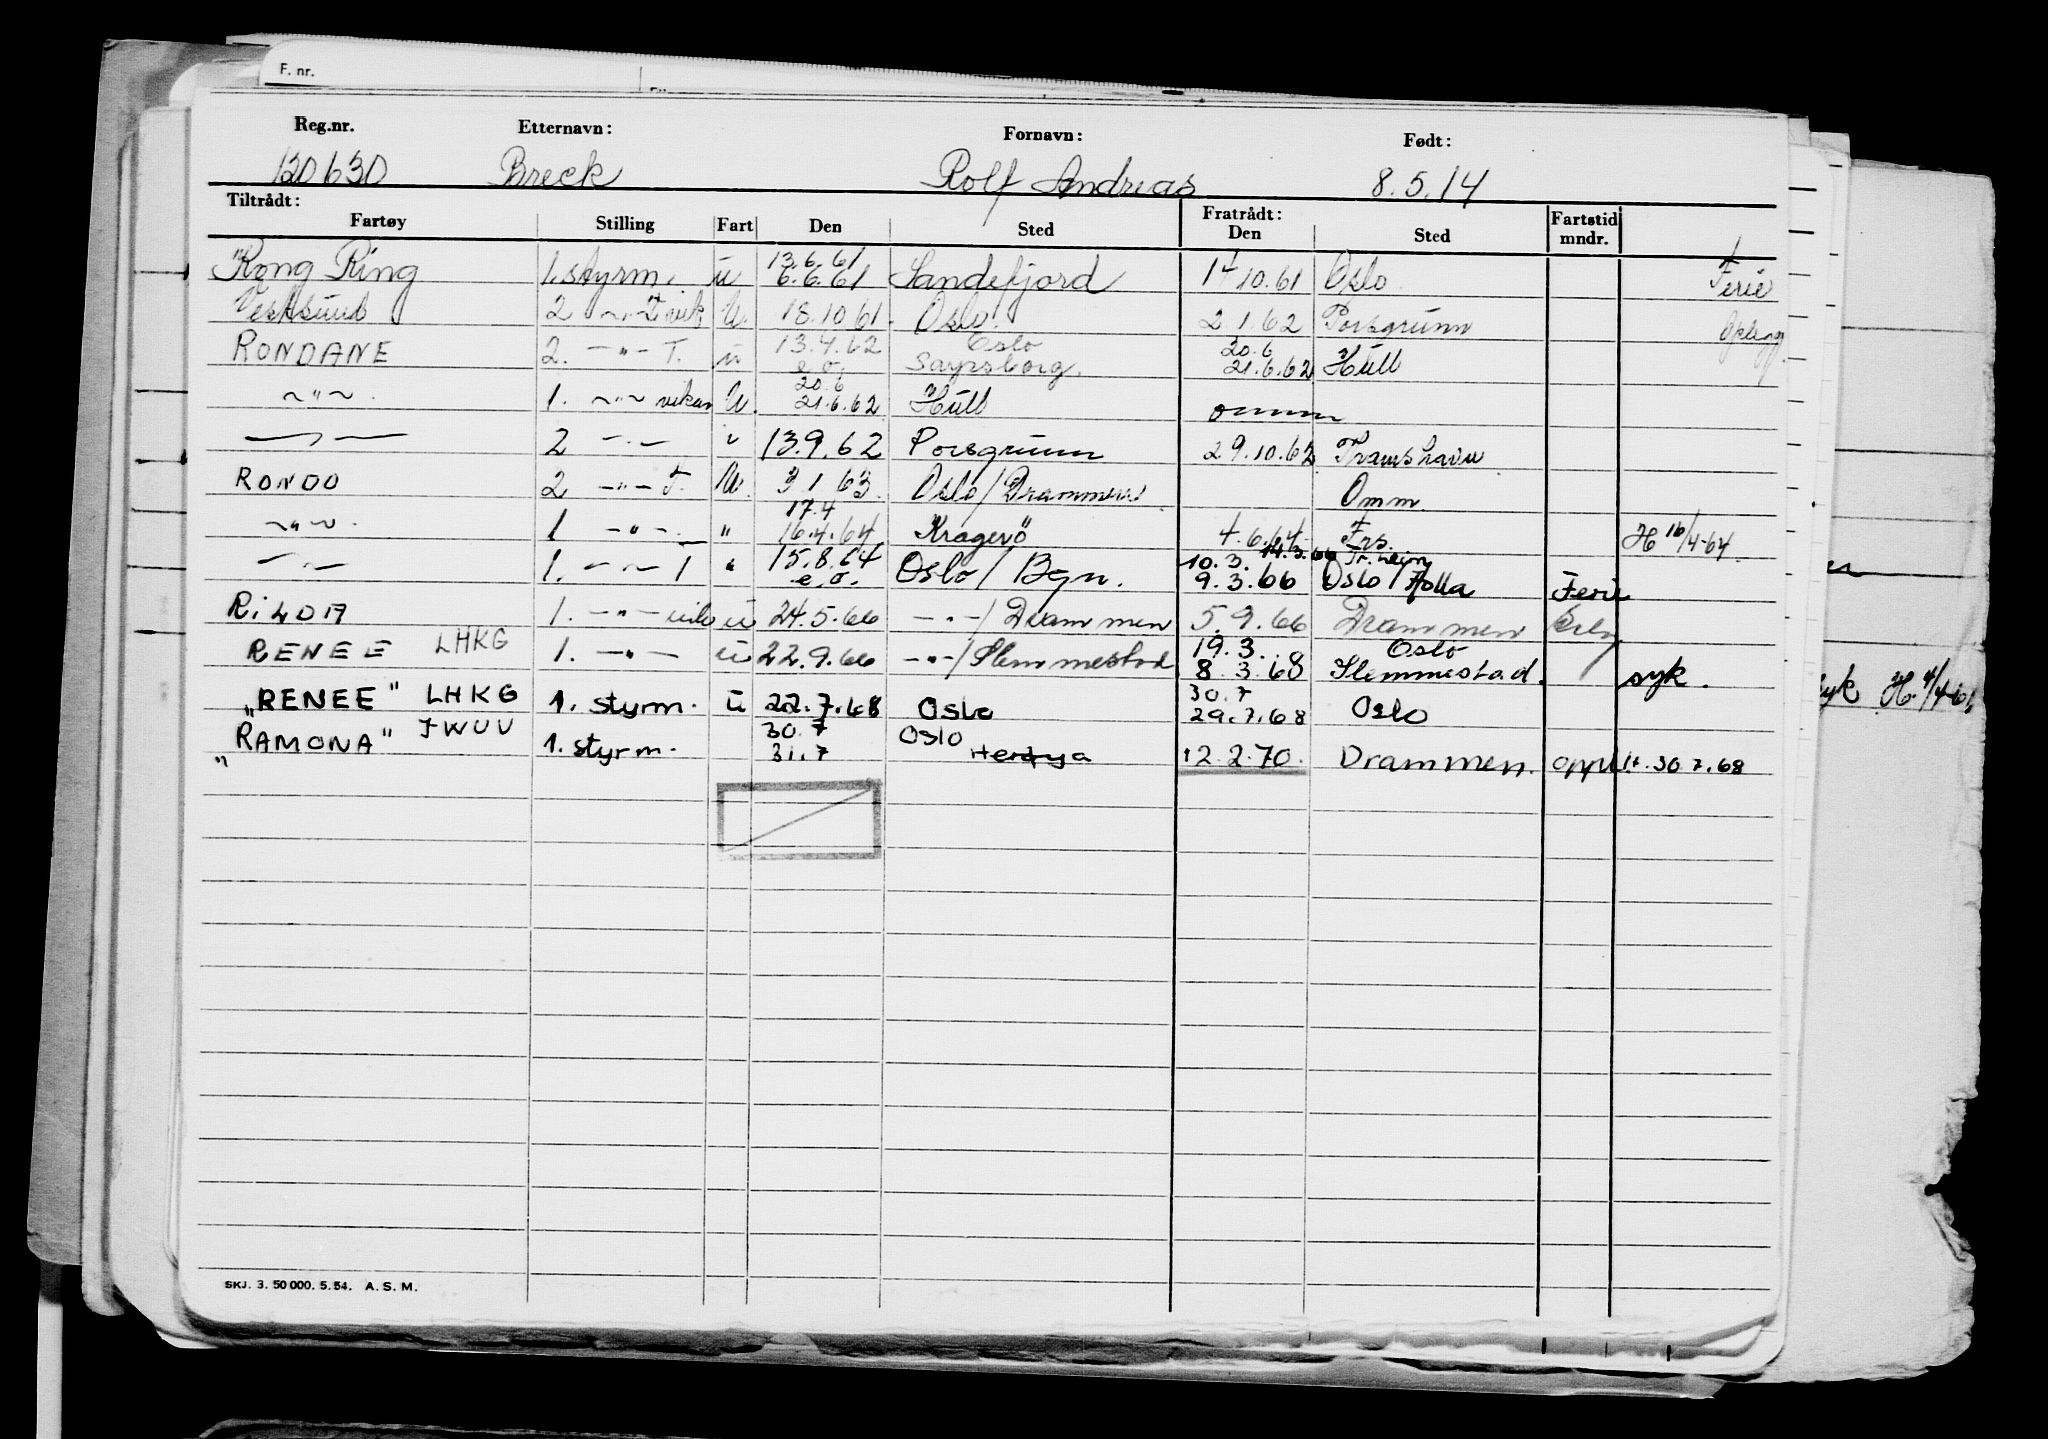 F. nr.
Reg.nr. Etternavn: Fornavn: Født:
120630 Breck Rolf Andreas 8.5.14
Tiltrådt: Fratrådt:
Fartøy Stilling Fart Den Sted Den Sted Fartstid mndr.
13.6.61
Kong Ring 1. styrm. ü 6.6.61 Sandefjord 14 10.61 Oslo Ferie
Vestsund 2 ~"~ T vik U. 18.10 61. Oslo. 2 1.62 Porsgrunn Oplegg
13.4.62 Oslo 20.6
RONDANE 2. -"- T. ü e.o. Sarpsborg. 21.6.62 Hull
20.6
~"~. 1. ~"~ vikar U. 21.6.62 Hull omm
2 -"- 13.9.62 Porsgrunn 29.10.62 Framshavn
RONDO 2 -"- T. U. 3 1 63. Oslo/Drammen Omm
17.4
~"~. 1 -"- " 16.4.64 Kragerö 4.6.64 Frs. H 16/4-64
15.8.64 10.3. 14.3.66 Tr.heim
-"- 1. -"- 1 " e.o. Oslo / Bgn. 9.3.66 Oslo / Holla Ferie
RiLDA 1. -"- vik ü 24.5.66 -"-/Drammen 5.9.66 Drammen
19.3. Oslo
RENEE LHKG 1. -"- ü 22.9.66 -"-/Slemmestad 8.3.68 Slemmestad. syk.
30.7
"RENEE" LHKG 1. styrm. ü 22.7.68 Oslo 29.7.68 Oslo
30.7 Oslo
"RAMONA" JWUV 1. styrm. 31.7 Herøya 12.2.70. Drammen. oppl. H. 30.7.68
syk H. 4/4-61
SKJ. 3. 50 000. 5.54. A. S. M.